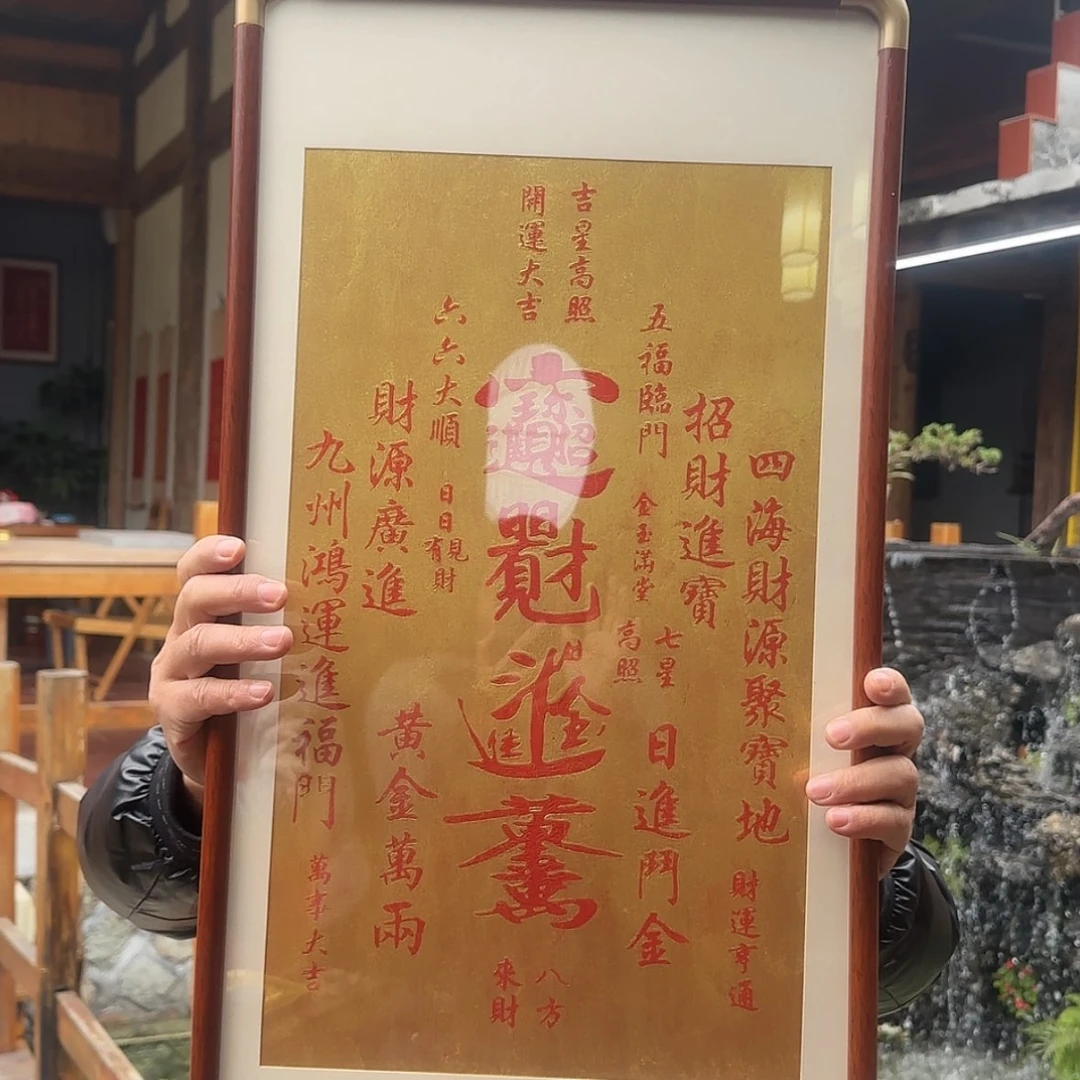 吉星高照
開運大吉
四海財源聚寶地
財運亨通
招財進寶
五福臨門
金玉滿堂
七星
高照
日進鬥金
八方
來財
六六大順
日日
有見財
財源廣進
黄金萬兩
九州鴻運進福門
萬事大吉